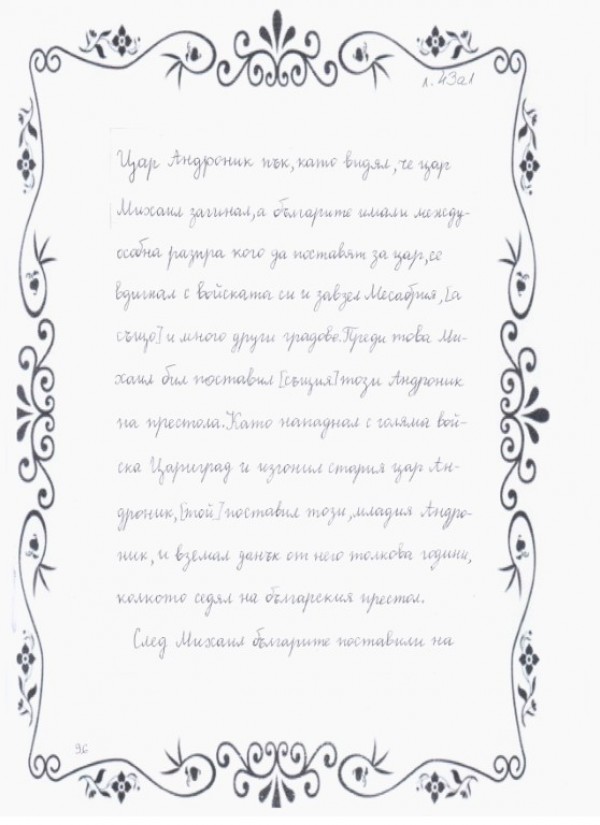 л. 43а1
Цар Андроник пък, като видял, че цар
Михаил загинал, а българите имали между-
особна разпра кого да поставят за цар, се
вдигнал с войската си и завзел Месаврия, [а
също] и много други градове. Преди това Ми-
хаил бил поставил [същия] този Андроник
на престола. Като нападнал с голяма вой-
ска Цариград и изгонил стария цар Ан-
дроник, [той] поставил този, младия Андро-
ник, и вземал данък от него толкова години,
колкото седял на българския престол.
След Михаил българите поставили на
96